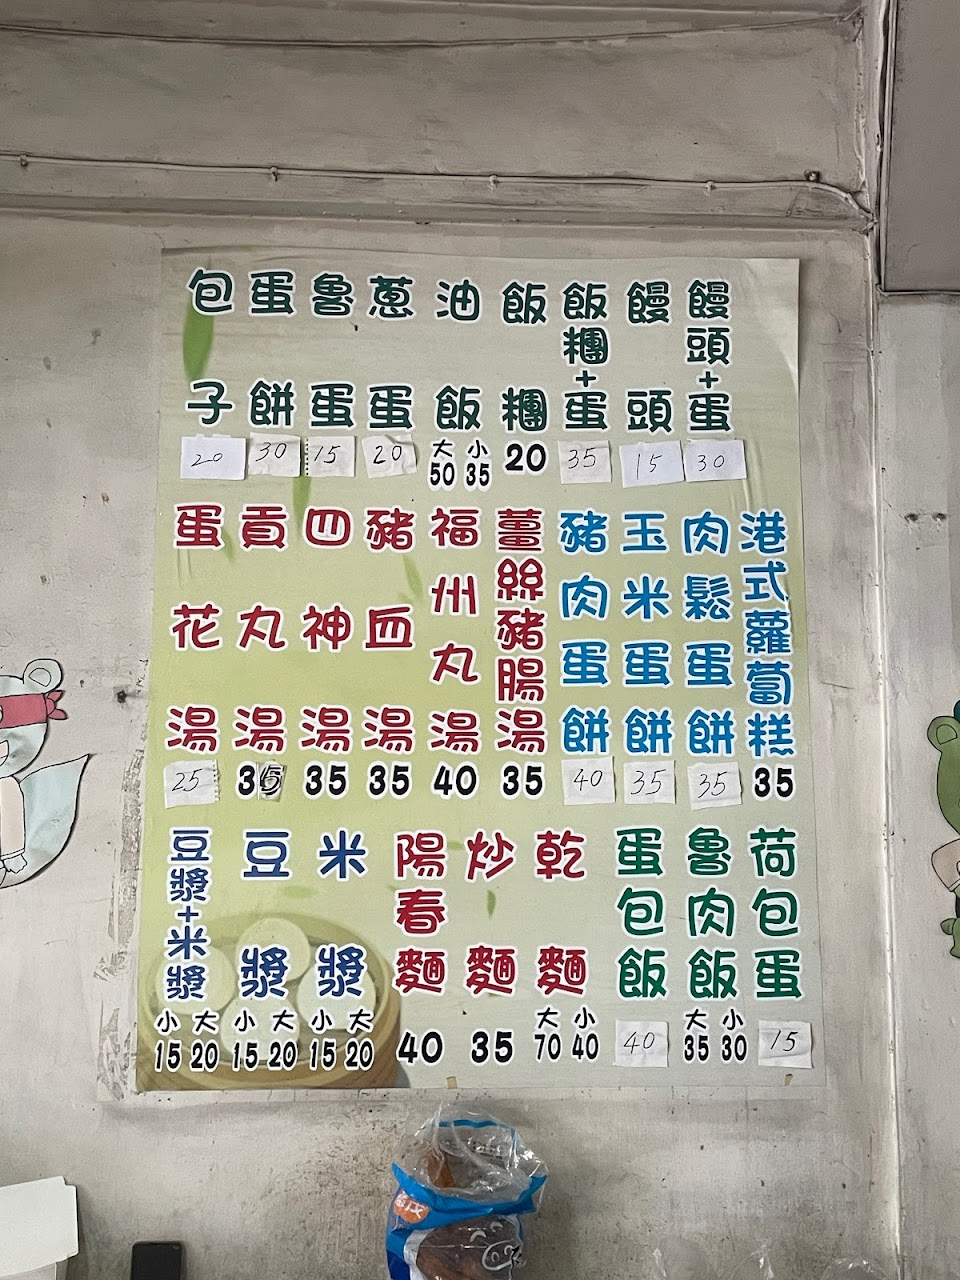 饅頭+蛋 30
饅頭 15
飯糰+蛋 35
飯糰 20
油飯 大50 小35
蔥蛋 20
魯蛋 15
蛋餅 30
包子 20
港式蘿蔔糕 35
肉鬆蛋餅 35
玉米蛋餅 35
豬肉蛋餅 40
薑絲豬腸湯 35
福州丸湯 40
豬血湯 35
四神湯 35
貢丸湯 35
蛋花湯 25
荷包蛋 15
魯肉飯 大35 小30
蛋包飯 40
乾麵 大70 小40
炒麵 35
陽春麵 40
米漿 小15 大20
豆漿 小15 大20
豆漿+米漿 小15 大20